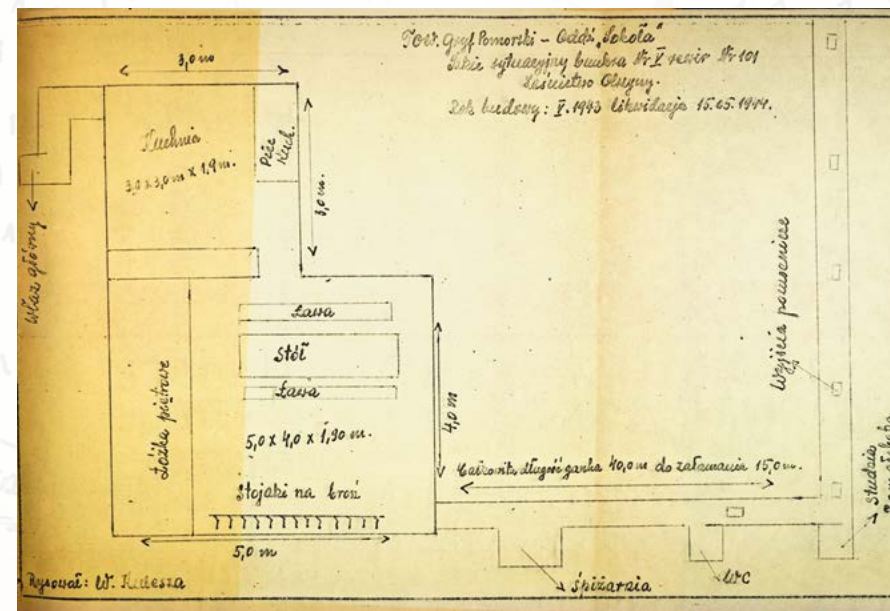 Tow. Gryf Pomorski – Oddz. „Sokoła"
Szkic sytuacyjny bunkra Nr V rewir Nr 101
Leśnictwo Olszyny.
Rok budowy: V. 1943 likwidacja 15.05.1944.
3,0 m
Kuchnia
3,0 x 3,0 m x 1,9 m.
Piec
Kuch.
3,0 m
Właz główny
Ława
Stół
Ława
Łóżka piętrowe
5,0 x 4,0 x 1,90 m.
4,0 m
Stojaki na broń
5,0 m
Całkowita długość ganka 40,0 m do załamania 15,0 m.
Wyjścia pomocnicze
Studnia
Spiżarnia
WC
Rysował: W.